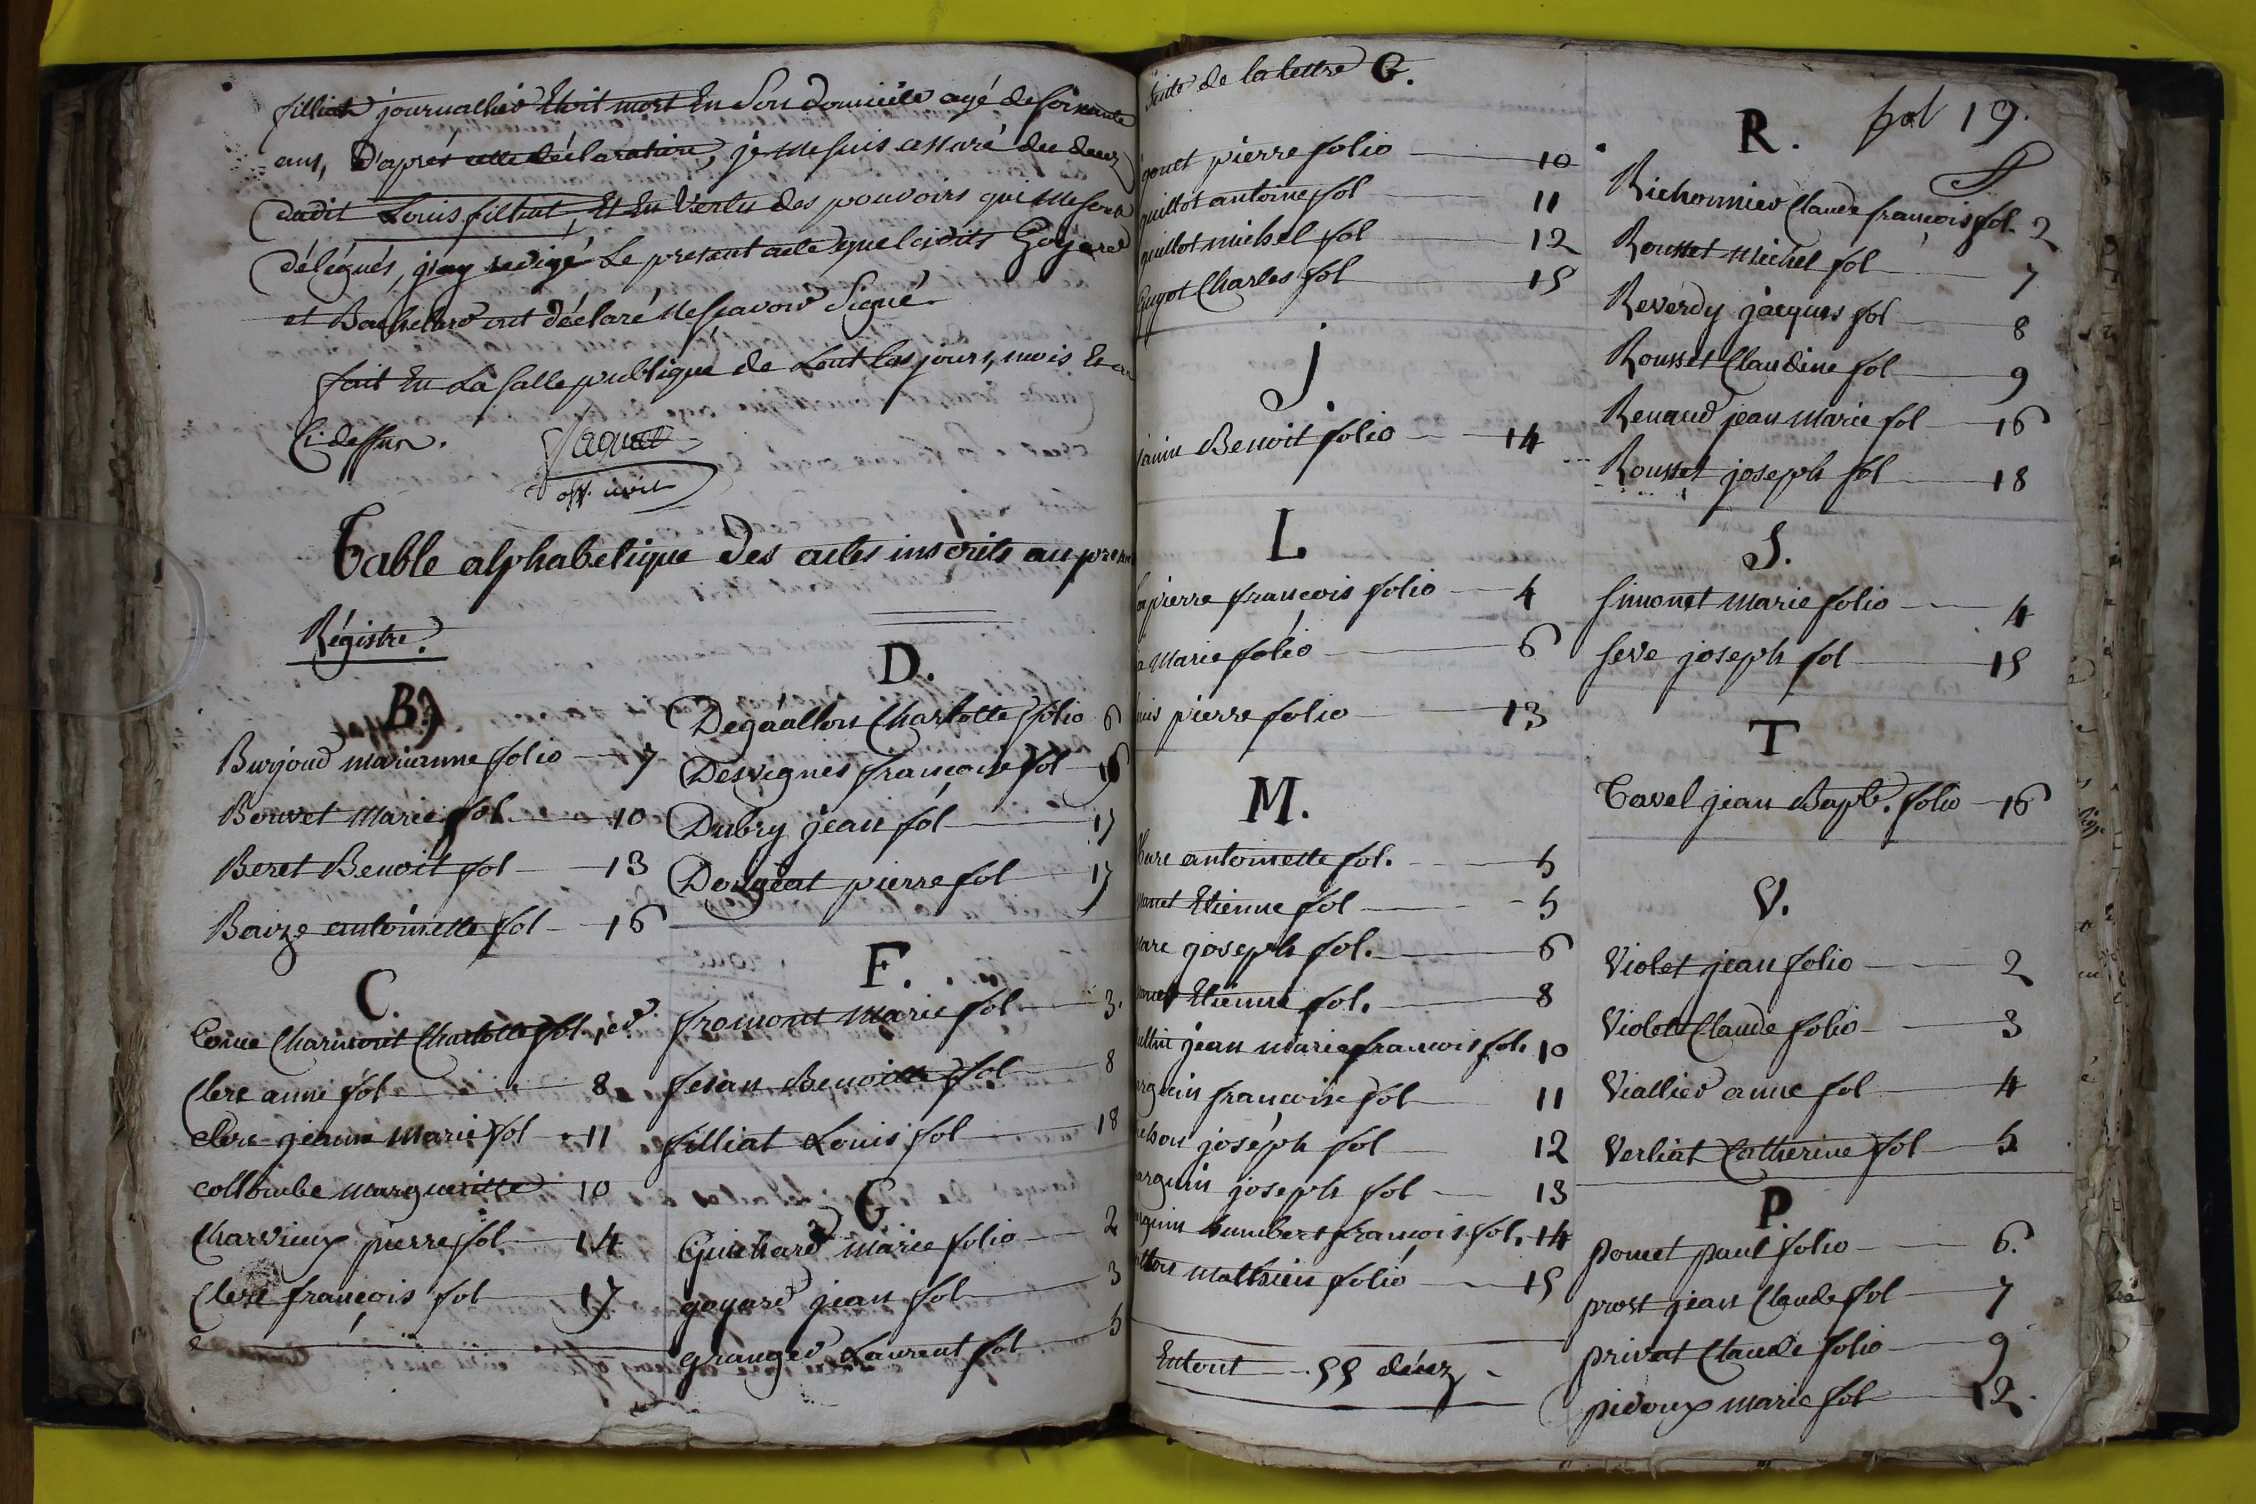 filliat journallier Etoit mort En Son domicile agé de soixante
ans, D'aprés cette déclaration, je me suis assuré du decez
dudit Louis filliat, Et En Vertu des pouvoirs qui me sont
délégués, j'ay redigé Le present acte que lesdits Goyard
et Bachelard ont déclaré Ne scavoir Signé
fait En La Salle publique de Lent les jours, mois Et an
Ci dessus.
Jacquet
off. civil
Table alphabetique Des actes inscrits au present
Régistre.
B.
Burjoud marianne folio 7
Bouvet Marie fol 10
Beret Benoit fol 13
Baize antoinette fol 16
C.
Charlotte fol 1er
Clerc anne fol 8
clerc jeanne Marie fol 11
collombe margueritte 10
Charvieux pierre fol 14
Clerc françois fol 17
D.
Degaallon Charlotte folio 6
Desvignes françoise fol 16
Dubry jean fol 17
Dougeat pierre fol 17
F.
fromont Marie fol 3.
fesan Benoitte fol 8
filliat Louis fol 18
G
Guichard Marie folio 2
goyard jean fol 3
granger Laurent fol 5
Suite de la lettre G.
gonet pierre folio 10
guillot antoine fol 11
guillot michel fol 12
Guyot Charles fol 15
J
janin Benoit folio 14
L.
lapierre françois folio 4
Marie folio 6
pierre folio 13
M.
antoinette fol. 5
Etienne fol 5
joseph fol. 6
Etienne fol. 8
jean marie francois fol. 10
francoise fol 11
joseph fol 12
joseph fol 13
humbert françois fol. 14
Mathieu folio 15
En tout 55 décez
fol 19.
R.
Richonnier Claude françois fol. 2
Rousset Michel fol 7
Reverdy jacques fol 8
Rousset Claudine fol 9
Renaud jean Marie fol 16
Rousset joseph fol 18
S.
Simonet Marie folio 4
Seve joseph fol 15
T
Tavel jean Bapt. folio 16
V.
Violet jean folio 2
Violet Claude folio 3
Viallier anne fol 4
Verliat Catherine fol 5
P.
pomet paul folio 6.
prost jean Claude fol 7
privat Claude folio 9
pidoux marie fol 12.